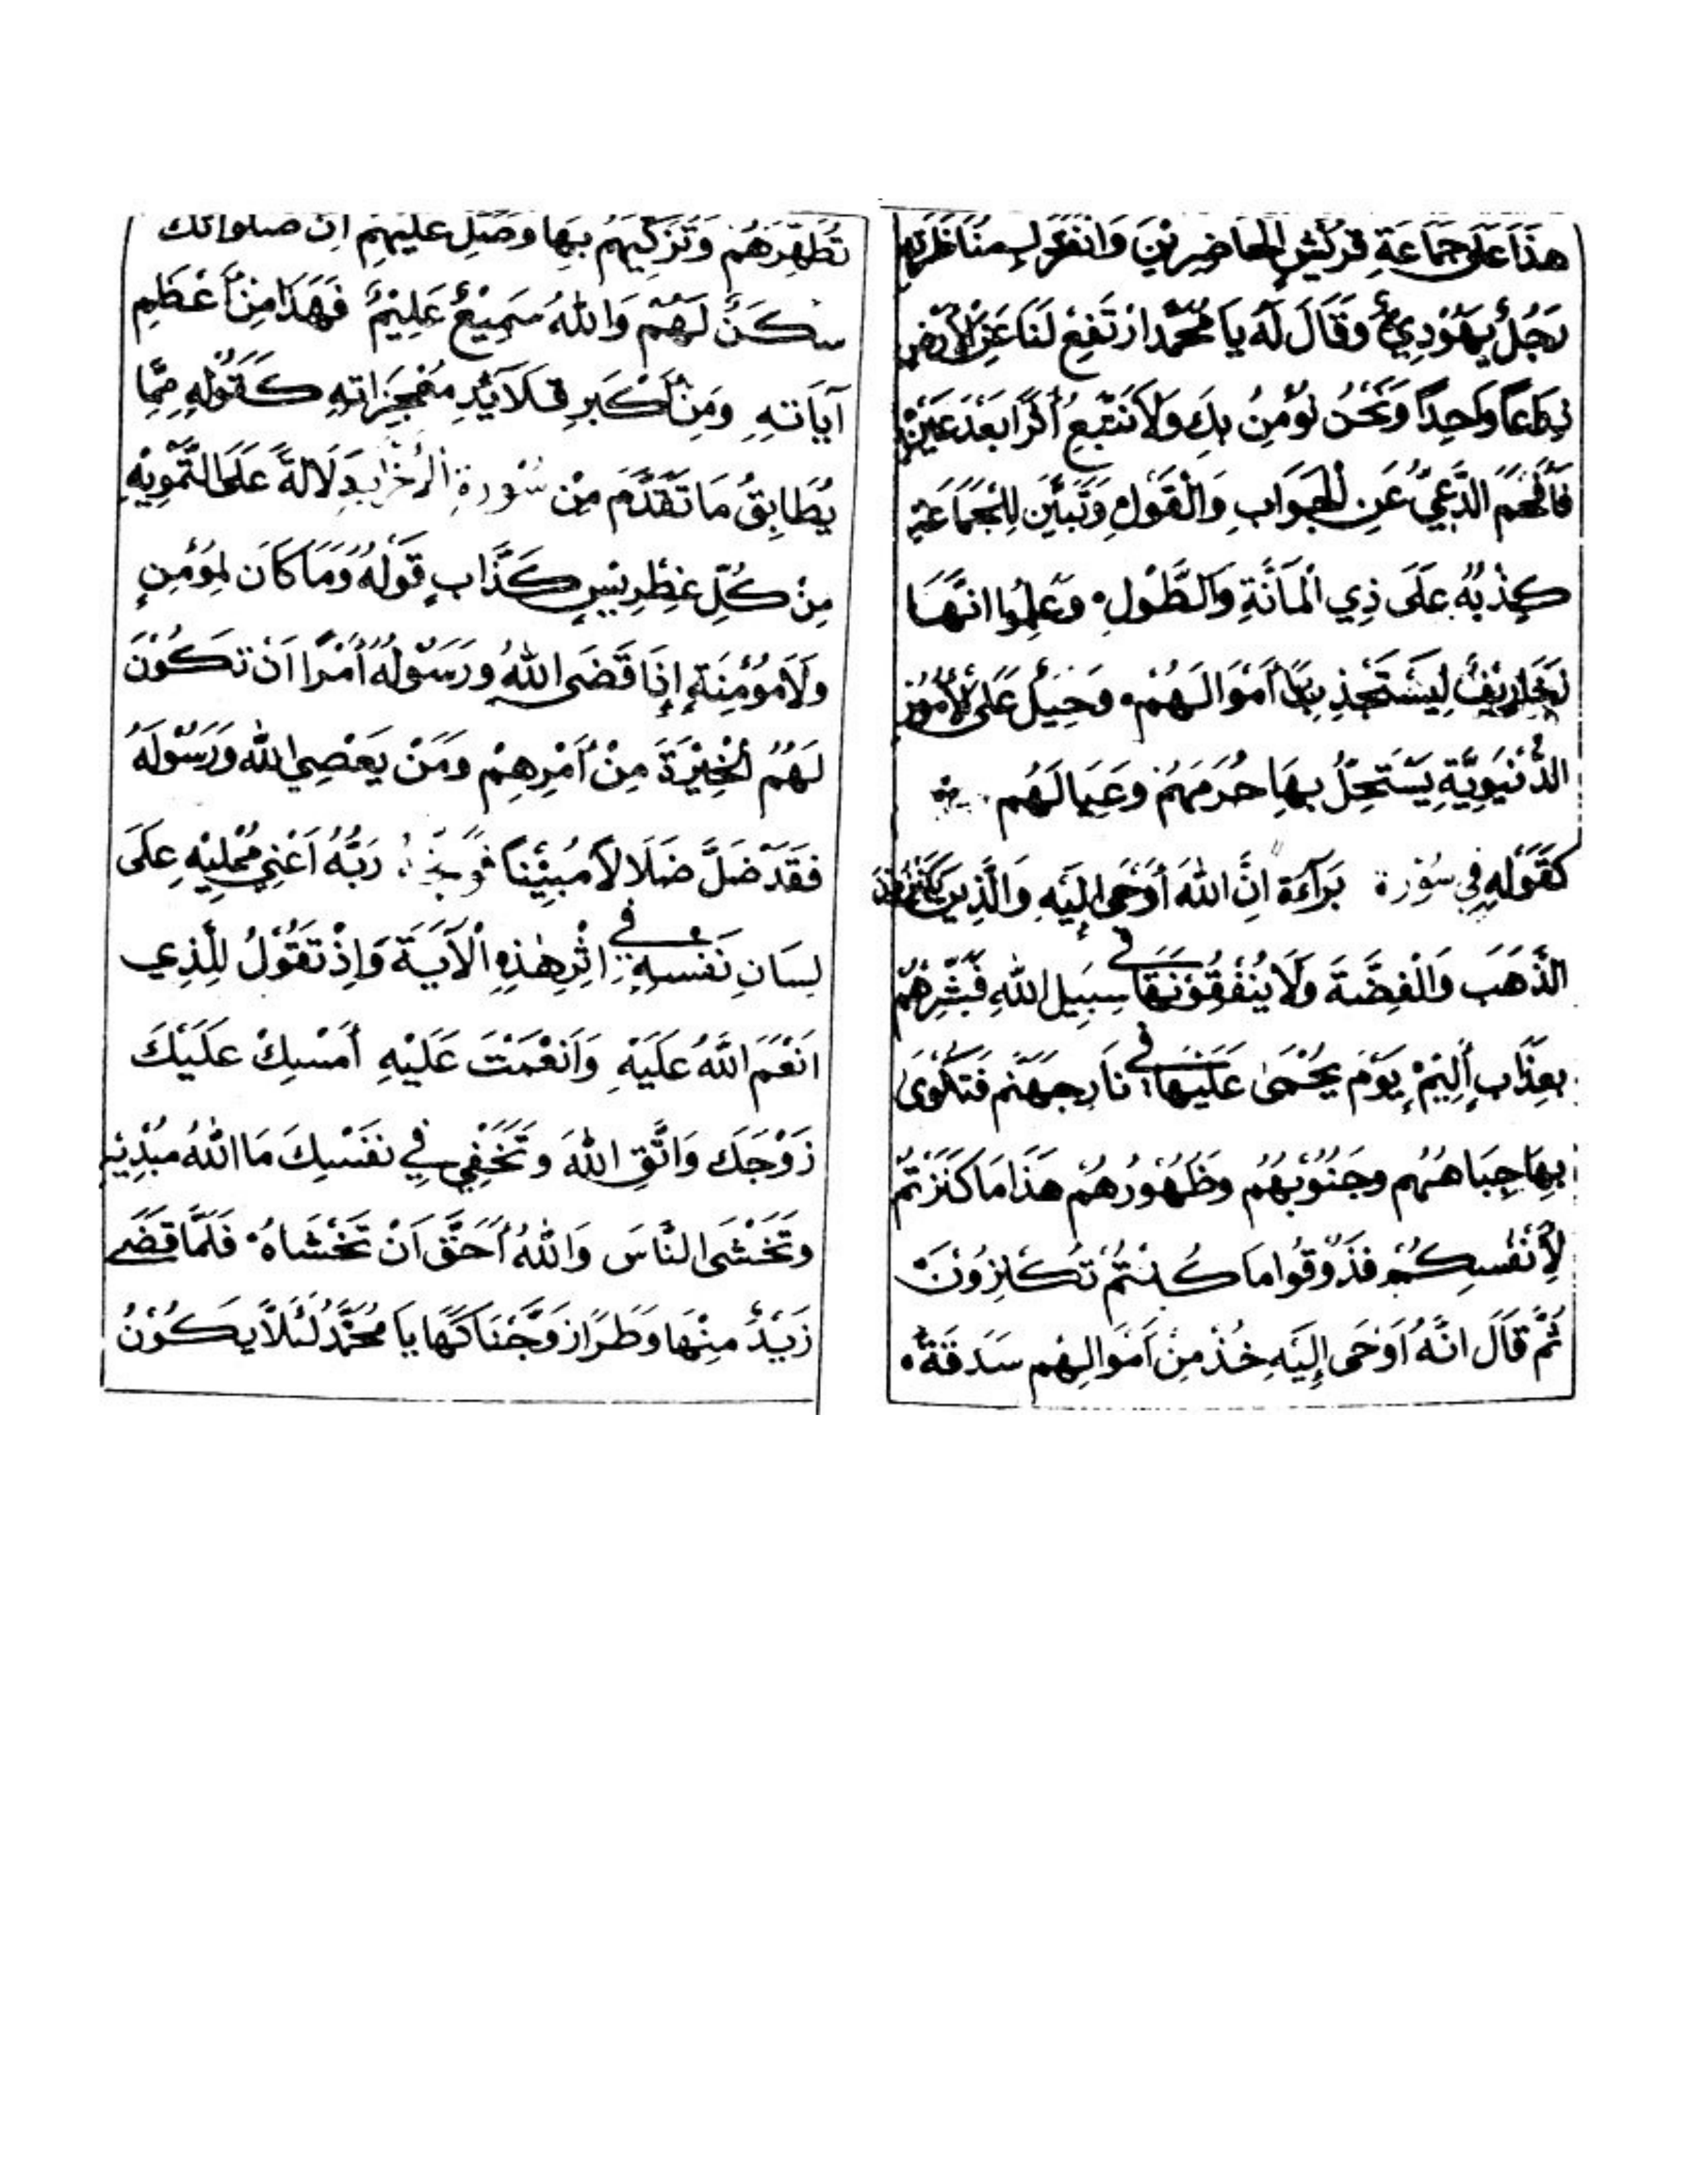 هَذَا عَلَى جَمَاعَةِ قُرَيْشٍ الحَاضِرِيْنَ وَانْفَرَدَ لِمُنَاظَرَتِهِ
رَجُلٌ يَهُوْدِيٌّ وَقَالَ لَهُ يَا مُحَمَّد ارْتَفِعْ لَنَا عَنِ الْأَرْضِ
وَاحِدًا وَنَحْنُ نُوْمِنُ بِكَ وَلَا نَتَّبِعُ أَثَرًا بَعْدَ عَيْنٍ
فَأُفْحِمَ الدَّعِيُّ عَنِ الْجَوَابِ وَالْقَوْلِ وَتَبَيَّنَ لِلْجَمَاعَةِ
كِذْبُهُ عَلَى ذِي الْمَانَّةِ وَالطَّوْلِ وَعَلِمُوا انَّهَا
لِيَسْتَجْذِبَ بِهَا أَمْوَالَهُمْ وَحِيَلٌ عَلَى الْأُمُوْرِ
الدُّنْيَوِيَّةِ يَسْتَحِلُّ بِهَا حُرَمَهُمْ وَعَيَالَهُم
كَقَوْلِهِ فِي سُوْرَة بَرَآءَة انَّ اللّٰهَ أَوْحَى إِلَيْهِ وَالَّذِينَ يَكْنِزُوْنَ
الذَّهَبَ وَالْفِضَّةَ وَلَا يُنْفِقُوْنَهَا في سَبِيلِ اللّٰهِ فَبَشِّرْهُمْ
بِعَذَابٍ أَلِيْمٍ يَوْمَ يُحْمَى عَلَيْهَا في نَارِ جَهَنَّمَ فَتُكْوَى
بِهَا جِبَاهُهُم وَجُنُوْبُهُمْ وَظُهُوْرُهُمْ هَذَا مَا كَنَزْتُمْ
لِأَنْفُسِكُمْ فَذُوْقُوا مَا كُنْتُمْ تَكْنِزُوْنَ
ثُمَّ قَالَ انَّهُ أَوْحَى إِلَيْهِ خُذْ مِنْ أَمْوَالِهِم سَدَقَةً
تُطَهِّرْهُمْ وَتُزَكِّيهِمْ بِهَا وَصَلِّ عَلَيْهِمْ اِنَّ صلواتك
سكَنٌ لَهُمْ وَاللّٰهُ سَمِيْعٌ عَلِيْمٌ فَهَذَا مِنْ أَعْظَمِ
آيَاتِهِ وَمِنْ أَكْبَرِ مُعْجِزَاتِهِ كَقَوْلِهِ مِمَّا
يُطَابِقُ مَا تَقَدَّمَ مِنْ سُوْرَةِ الأحْزَابِ دَلَالَةً عَلَى التَّمْوِيْهِ
مِنْ كُلِّ غِطْرِيْسٍ كَذَّابٍ قَوْلُهُ وَمَا كَانَ لِمُوْمِنٍ
وَلَا مُوْمِنَةٍ إِذَا قَضَى اللّٰهُ وَرَسُوْلُهُ أَمْرًا اَنْ تَكُوْنَ
لَهُمُ الْخِيْرَةُ مِنْ أَمْرِهِمْ وَمَنْ يَعْصِي اللّٰهَ وَرَسُوْلَهُ
فَقَدْ ضَلَّ ضَلَالًا مُبِيْنًا رَبُّهُ اَعْنِي مُمْلِيْهِ عَلَى
لِسَانِ نَفْسِهِ في اثْرِ هٰذِهِ الْآيَةَ وَاِذْ تَقُوْلُ لِلَّذِي
اَنْعَمَ اللّٰهُ عَلَيْهِ وَاَنْعَمْتَ عَلَيْهِ أَمْسِكْ عَلَيْكَ
زَوْجَكَ وَاتَّقِ اللّٰهَ وَتُخْفِي فِي نَفْسِكَ مَا اللّٰهُ مُبْدِيْهِ
وَتَخْشَى النَّاسَ وَاللّٰهُ أَحَقُّ اَنْ تَخْشَاهُ فَلَمَّا قَضَى
زَيْدٌ مِنْهَا وَطَرًا زَوَّجْنَاكَهَا يَا مُحَمَّدُ لِئَلَّا يَكُوْنُ